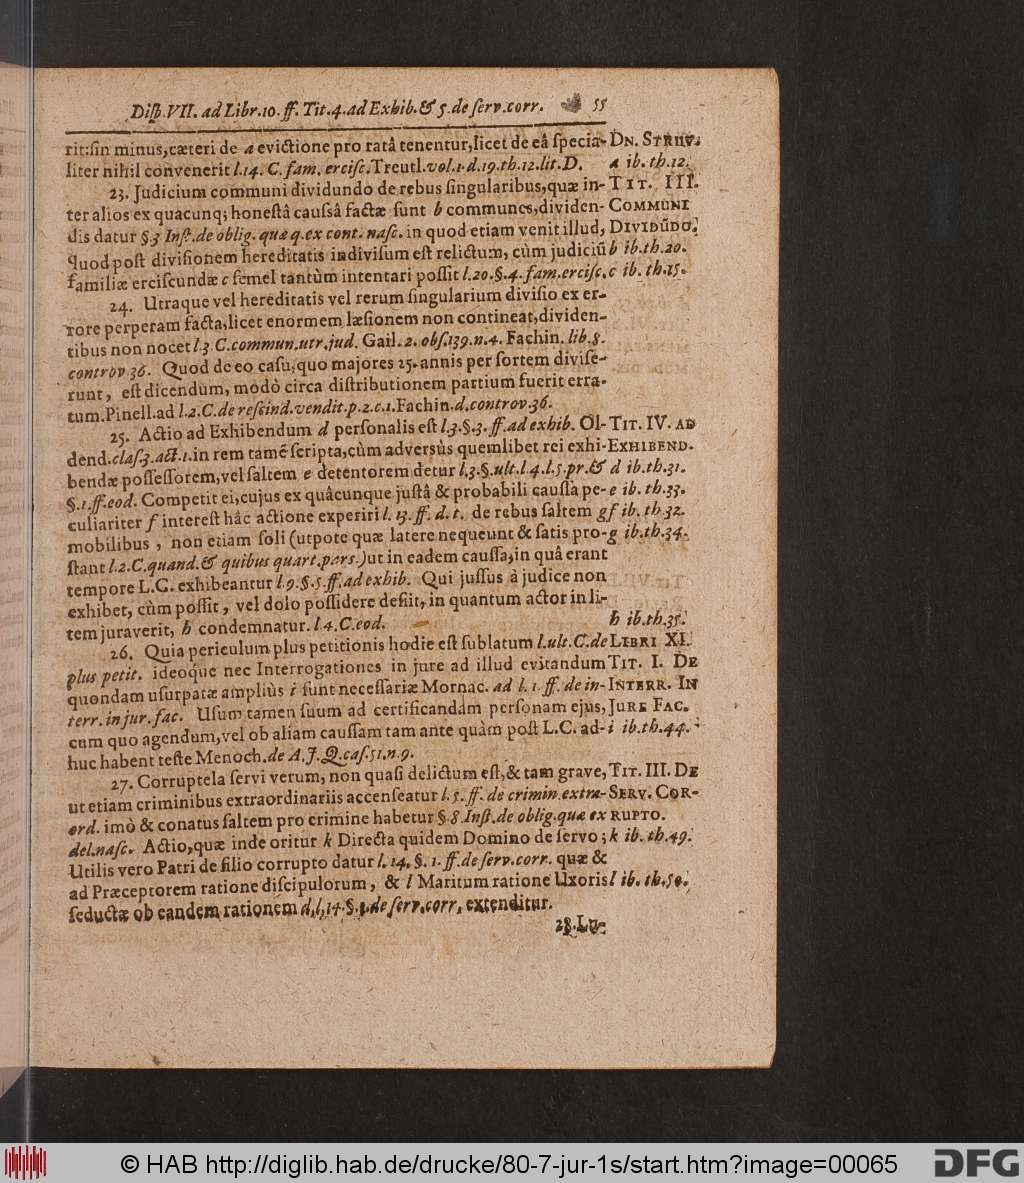 Disp. VII. ad Libr. 10. ff. Tit. 4. ad Exhib. & 5. de serv. corr. 55
rit: sin minus, cæteri de a evictione pro ratâ tenentur, licet de eâ specia- DN. STRUV.
liter nihil convenerit l. 14. C. fam. ercisc. Treutl. vol. 1. d. 19. th. 12. lit. D. a ib. th. 12.
23. Judicium communi dividundo de rebus singularibus, quæ in- TIT. III.
ter alios ex quacunq; honestâ caussâ factæ sunt b communes, dividen- COMMUNI
dis datur §. 3 Inst. de oblig. quæ q. ex cont. nasc. in quod etiam venit illud, DIVIDŨDO.
quod post divisionem hereditatis indivisum est relictum, cùm judiciũ b ib. th. 20.
familiæ erciscundæ c semel tantùm intentari possit l. 20. §. 4. fam. ercisc. c ib. th. 15.
24. Utraque vel hereditatis vel rerum singularium divisio ex er-
rore perperam facta, licet enormem læsionem non contineat, dividen-
tibus non nocet l. 3 C. commun. utr. jud. Gail. 2. obs. 139. n. 4. Fachin. lib. 8.
controv. 36. Quod de eo casu, quo majores 25. annis per sortem divise-
runt, est dicendum, modò circa distributionem partium fuerit erra-
tum. Pinell. ad l. 2. C. de rescind. vendit. p. 2. c. 1. Fachin. d. controv. 36.
25. Actio ad Exhibendum d personalis est l. 3. §. 3. ff. ad exhib. Ol- TIT. IV. AD
dend. clas. 3. act. 1. in rem tamẽ scripta, cùm adversùs quemlibet rei exhi- EXHIBEND.
bendæ possessorem, vel saltem e detentorem detur l. 3. §. ult. l. 4. l. 5. pr. & d ib. th. 31.
§. 1. ff. eod. Competit ei, cujus ex quâcunque justâ & probabili caussa pe- e ib. th. 33.
culiariter f interest hâc actione experiri l. 13. ff. d. t. de rebus saltem g f ib. th. 32.
mobilibus, non etiam soli (utpote quæ latere nequeunt & satis pro- g ib. th. 34.
stant l. 2. C. quand. & quibus quart. pars.) ut in eadem caussa, in quâ erant
tempore L. C. exhibeantur l. 9. §. 5. ff. ad exhib. Qui jussus à judice non
exhibet, cùm possit, vel dolo possidere desiit, in quantum actor in li-
tem juraverit, h condemnatur. l 4. C. eod. h ib. th. 35.
26. Quia periculum plus petitionis hodie est sublatum l. ult. C. de LIBRI XI.
plus petit. ideoq́ue nec Interrogationes in jure ad illud evitandum TIT. I. DE
quondam usurpatæ ampliùs i sunt necessariæ Mornac. ad l. 1. ff. de in- INTERR. IN
terr. in jur. fac. Usum tamen suum ad certificandam personam ejus, JURE FAC.
cum quo agendum, vel ob aliam caussam tam ante quàm post L. C. ad- i ib. th. 44.
huc habent teste Menoch. de A. J. Q. cas. 51. n. 9.
27. Corruptela servi verum, non quasi delictum est, & tam grave, TIT. III. DE
ut etiam criminibus extraordinariis accenseatur l. 5. ff. de crimin. extra- SERV. COR-
ord. imò & conatus saltem pro crimine habetur §. 8 Inst. de oblig. quæ ex RUPTO.
del. nasc. Actio, quæ inde oritur k Directa quidem Domino de servo; k ib. th. 49.
Utilis vero Patri de filio corrupto datur l. 14. §. 1. ff. de serv. corr. quæ &
ad Præceptorem ratione discipulorum, & l Maritum ratione Uxoris l ib. th. 50.
seductæ ob eandem rationem d. l. 14. §. 1. de serv. corr. extenditur.
28. Lu-
© HAB http://diglib.hab.de/drucke/80-7-jur-1s/start.htm?image=00065 DFG